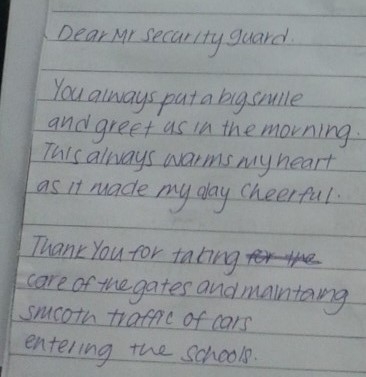 Dear Mr security guard.
You always put a big smile
and greet us in the morning.
This always warms my heart
as it made my day cheerful.
Thank You for taking for the
care of the gates and maintaing
smooth traffic of cars
entering the schools.